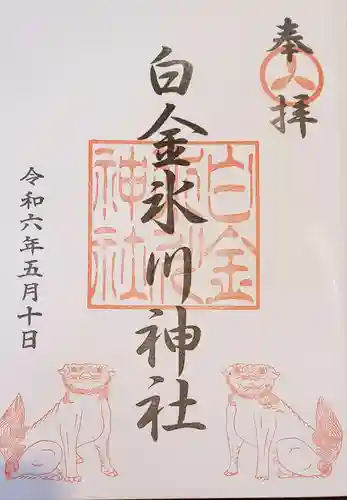 奉拝
白金氷川神社
白金
氷川
神社
令和六年五月十日